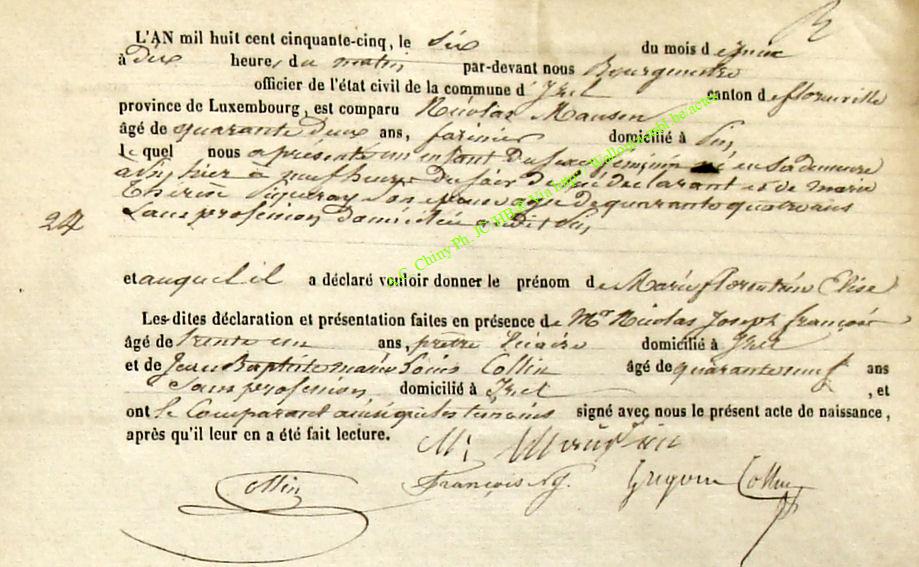 L'AN mil huit cent cinquante-cinq, le six du mois de juin
à dix heures du matin par-devant nous Bourgmestre
officier de l'état civil de la commune d'Izel canton de florenville
province de Luxembourg, est comparu Nicolas Mausen
âgé de quarante deux ans, farinier domicilié à Pin,
Lequel nous a présenté un enfant du sexe féminin né en sa demeure
à Pin, hier à neuf heures du soir de lui déclarant et de marie
Thérèse son épouse agée de quarante quatre ans
Sans profession, Domiciliée audit Pin,
24
et auquel il a déclaré vouloir donner le prénom de Marie florentine Elise
Les dites déclaration et présentation faites en présence de Mr Nicolas Joseph françois
âgé de trente un ans, prêtre vicaire domicilié à Izel
et de Jean Baptiste marie Louis Collin âgé de quarante neuf ans
Sans profession, domicilié à Izel , et
ont le Comparant ainsi que les témoins signé avec nous le présent acte de naissance,
après qu'il leur en a été fait lecture.
Collin François NJ. Grégoire Collin